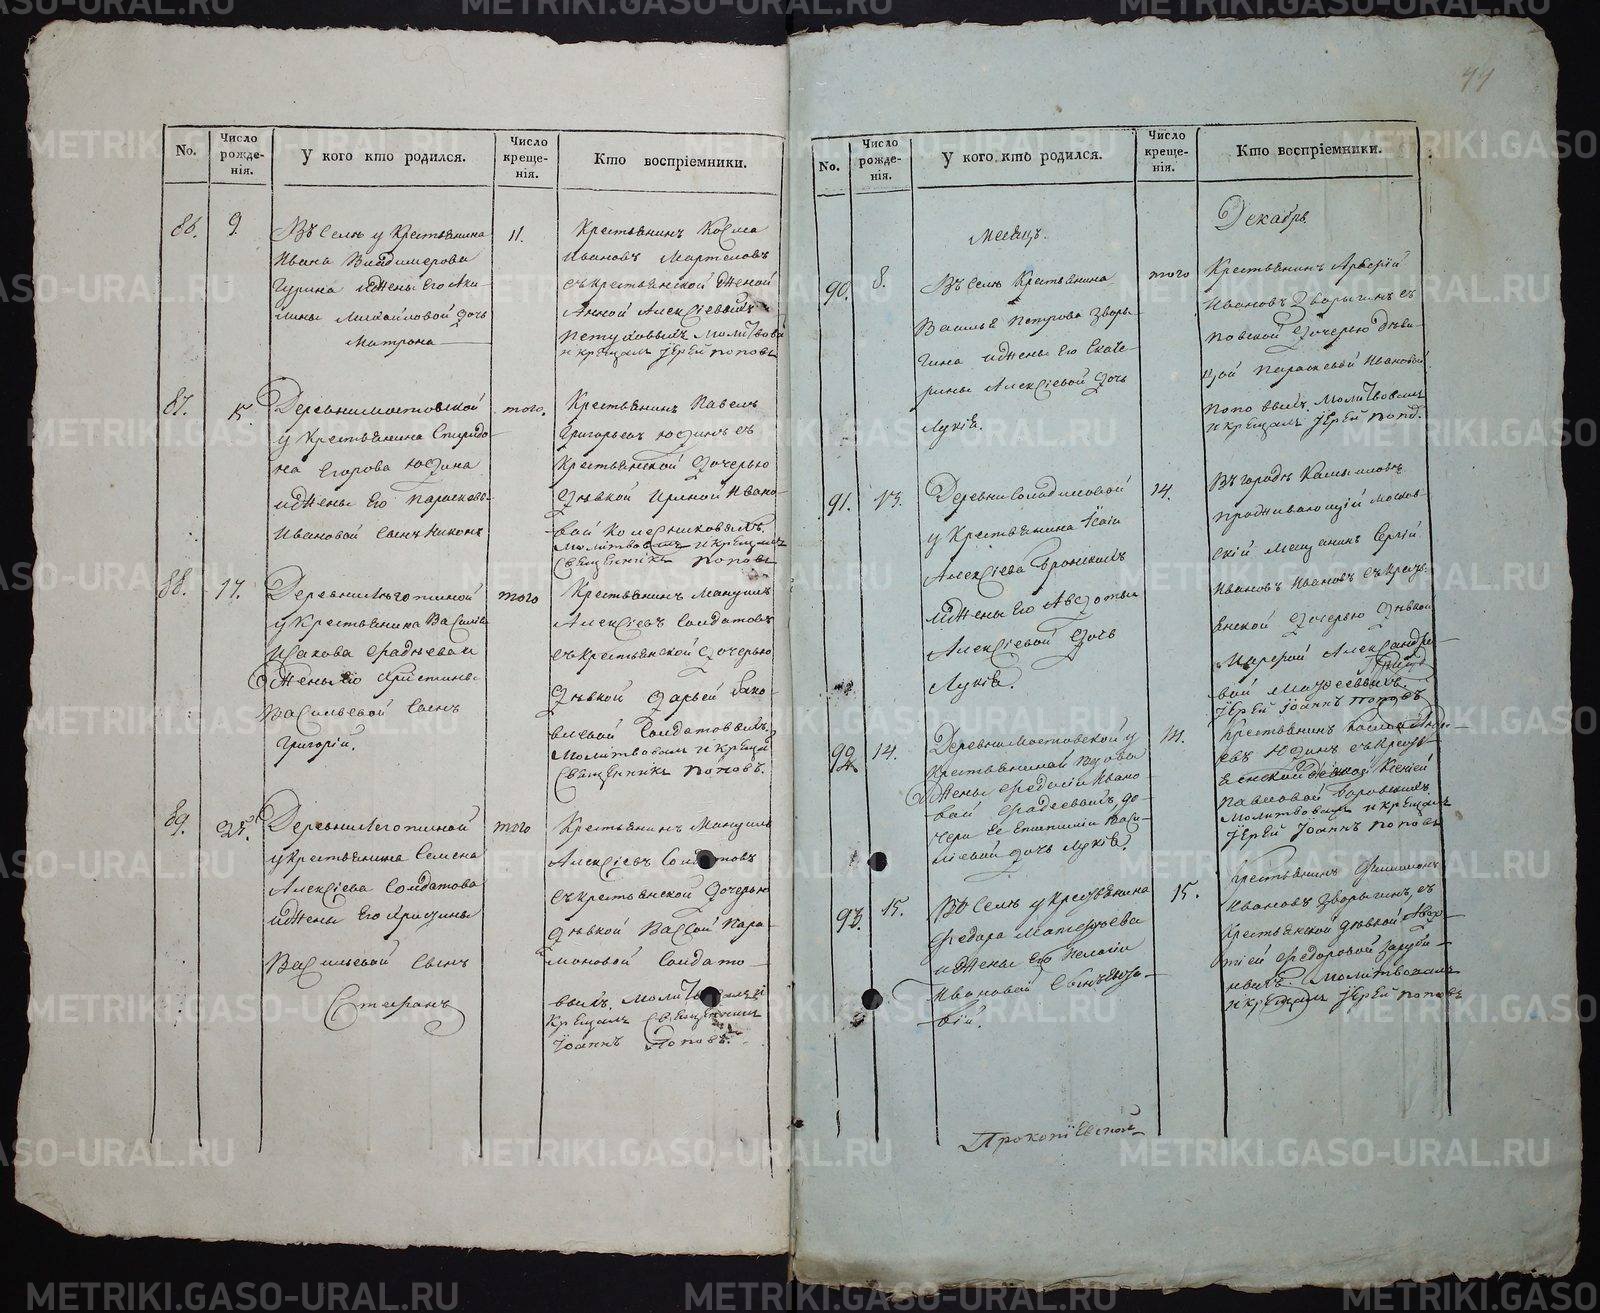 No.
Число рожде-нія.
У кого кто родился.
Число креще-нія.
Кто воспріемники.
86.
9.
Въ Селѣ у Крестьянина
Ивана Владимерова
Гурина и Жены Его Аки-
лины Михайловой дочь
Матрона
11.
Крестьянинъ Косма
Ивановъ Мартеловъ
съ крестьянской Женой
Анной Алексіевыхъ
Петуховыхъ Молитвовал
и крещалъ Іерей Поповъ
87.
15.
Деревни Мостовской
у Крестьянина Спиридо-
на Егорова Юдина
и Жены Его Параскевы
Ивановой Сынъ Никонъ
того.
Крестьянинъ Павелъ
Григорьевъ Юдинъ съ
Крестьянской дочерью
дѣвкой Ириной Ивано-
вой Колесниковыхъ
Молитвовалъ и крещалъ
Священникъ Поповъ
88.
17.
Деревни
у Крестьянина Василія
Исакова Фадѣева и
Жены Его Христины
Васильевой Сынъ
Григорій.
того
Крестьянинъ Мануилъ
Алексіевъ Солдатовъ
съ крестьянской дочерью
дѣвкой Дарьей Яко-
влевой Солдатовыхъ
Молитвовалъ и крещал
Священникъ Поповъ.
89.
Деревни
у крестьянина Семена
Алексіева Солдатова
и Жены Его Христины
Васильевой Сынъ
Стефанъ
того
Крестьянинъ Мануилъ
Алексіевъ Солдатовъ
съ крестьянской дочерью
дѣвкой Вассой Пара-
моновой Солдато-
выхъ Молитвовалъ и
крещалъ Священникъ
Іоаннъ Поповъ.
44
No.
Число рожде-нія.
У кого кто родился.
Число креще-нія.
Кто воспріемники.
Месяцъ.
Декабрь
90.
8.
Въ Селѣ Крестьянина
Василья Петрова Звѣры-
гина и Жены Его Екате-
рины Алексіевой дочь
Лукія.
того
Крестьянинъ
Ивановъ Зворыгинъ съ
повской дочерью дѣви-
цой Параскевой Ивановой
Поповыхъ. Молитвовалъ
и крещалъ Іерей Попов.
91.
13.
Деревни Солодиловой
у Крестьянина Ісаіи
Алексіева
и Жены Его Авдотьи
Алексіевой дочь
Лукія.
14.
Въ городѣ Камышловѣ
проживающій Москов-
скій Мещанинъ Сергій
Ивановъ Ивановъ съ кресть-
янской дочерью дѣвкой
Марѳой Александро-
вой Матѳеевыхъ.
Іерей Іоаннъ Поповъ
92.
14.
Деревни Мостовской у
Крестьянина
Жены Федосіи Ивано-
вой Фадеевыхъ до-
чери Ее Епистиміи Васи-
лієвой дочь Лукія.
14.
Крестьянинъ
евъ Юдинъ съ Кресть-
янской дѣвкой Ксеніей
Павловой Боровскихъ
Молитвовалъ и крещалъ
Іерей Іоаннъ Поповъ
93.
15.
Въ Селѣ у Крестьянина
Федора Матѳеева
и Жены Его Пелагіи
Ивановой Сынъ
вій.
15.
Крестьянинъ Филимонъ
Ивановъ Зворыгинъ, съ
Крестьянской дѣвкой Авдо-
тіей Федоровой Заруби-
ныхъ. Молитвовалъ
и крещалъ Іерей Поповъ
Прокопіевской
METRIKI.GASO-URAL.RU